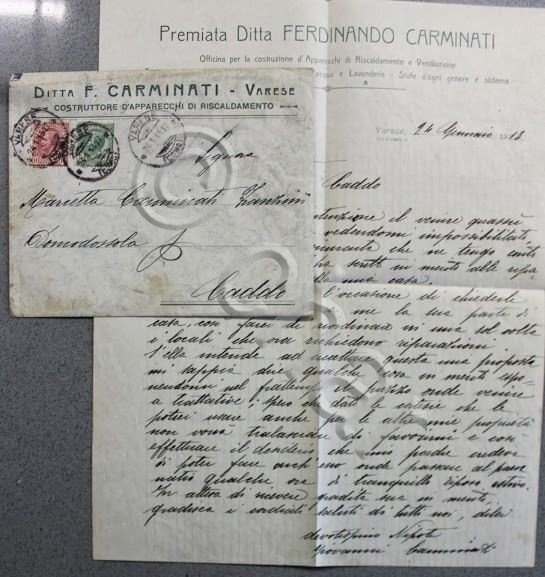 Premiata Ditta FERDINANDO CARMINATI
Officina per la costruzione d'Apparecchi di Riscaldamento e Ventilazione
acqua e Lavanderie - Stufe d'ogni genere e sistema
DITTA F. CARMINATI - VARESE
COSTRUTTORE D'APPARECCHI DI RISCALDAMENTO
VARESE
VARESE
Varese, 24 Gennaio 1913
Signora
Marietta Carminati Zanzini
Domodossola
Caddo
Caddo
intenzione il venire quassù
vedendomi impossibilitato
che ne tengo conto
ha scritto in merito alle ripa
alla mia casa.
l'occasione di chiederle
me la sua parte di
casa, così farei di riordinare in una sol volta
i locali che ora richiedono riparazioni.
S'ella intende ad accettare questa mia proposta
mi sappia dire qualche cosa in merito
nel frattempo il prezzo onde venire
a trattative. Spero che dato le intese che le
potei usare anche per le altre mie proposte
non vorrà tralasciare di favorirmi e così
effettuare il desiderio che mio padre credeva
di poter fare onde passare al paese
natio qualche ora di tranquillo riposo estivo.
In attesa di ricevere gradita sua in merito,
gradisca i cordiali saluti di tutti noi, dello
devotissimo Nipote
Giovanni Carminati